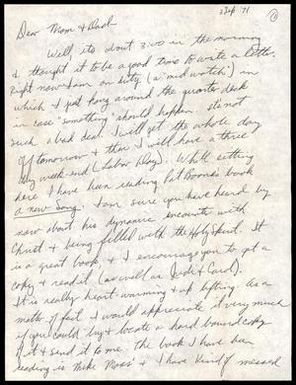 2 Sep 71
1
Dear Mom & Dad
Well, its about 3:00 in the morning
& thought it to be good time to write a letter.
Right now I am on duty (a "mid watch") in
which I just hang around the quarter deck
in case "something" should happen. its not
such a bad deal. I will get the whole day
off tomorrow & then I will have a three
day week-end (Labor Day). While sitting
here I have been reading Pat Boone's book
a new Song. I am sure you have heard by
now about his dynamic encounter with
Christ & being filled with the Holy Spirit. It
is a great book & I encourage you to get a
copy & read it (as well as & Carol).
It is really heart warming & up lifting. As a
matter of fact I would appreciate it very much
if you could try & locate a hard bound copy
of it & send it to me. the book I have been
reading is Mike Moss' & I have kind of messed